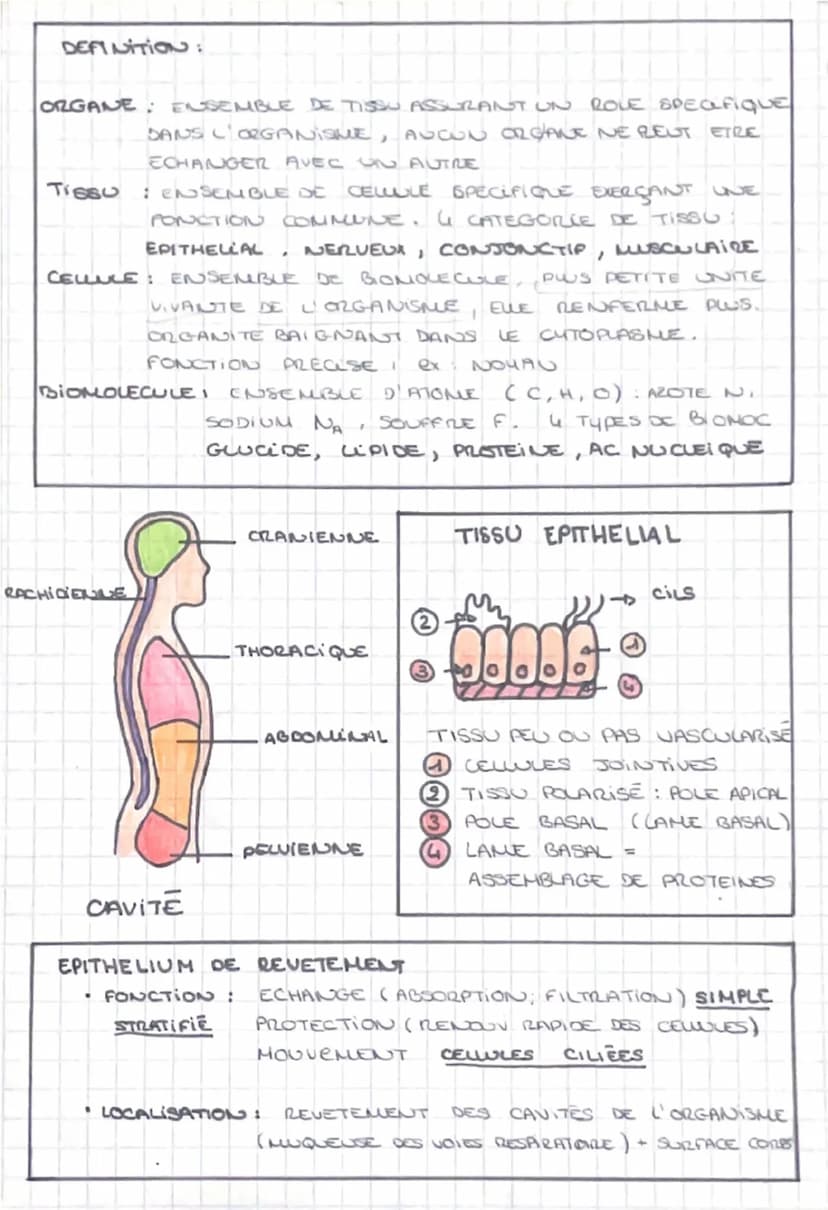 DEFINITION :
ORGANE : ENSEMBLE DE TISSU ASSURANT UN ROLE SPECIFIQUE
DANS L'ORGANISME, AUCUN ORGANE NE PEUT ETRE
ECHANGER AVEC UN AUTRE
TISSU : ENSEMBLE DE CELLULE SPECIFIQUE EXERÇANT UNE
FONCTION COMMUNE. 4 CATEGORIE DE TISSU :
EPITHELIAL, NERVEUX, CONJONCTIF, MUSCULAIRE
CELLULE : ENSEMBLE DE BIOMOLECULE, PLUS PETITE UNITE
VIVANTE DE L'ORGANISME, ELLE RENFERME PLUS.
ORGANITE BAIGNANT DANS LE CYTOPLASME.
FONCTION PRECISE, ex : NOYAU
BIOMOLECULE : ENSEMBLE D'ATOME (C, H, O) : AZOTE N.
SODIUM NA, SOUFFRE F. 4 TYPES DE BIOMOC
GLUCIDE, LIPIDE, PROTEINE, AC NUCLEIQUE
CRANIENNE
RACHIDIENNE
THORACIQUE
ABDOMINAL
PELVIENNE
CAVITÉ
TISSU EPITHELIAL
CILS
2
1
3
4
TISSU PEU OU PAS VASCULARISÉ
1 CELLULES JOINTIVES
2 TISSU POLARISÉ : POLE APICAL
3 POLE BASAL (LAME BASAL)
4 LAME BASAL =
ASSEMBLAGE DE PROTEINES
EPITHELIUM DE REVETEMENT
• FONCTION : ECHANGE (ABSORPTION, FILTRATION) SIMPLE
STRATIFIÉ PROTECTION (RENOUV RAPIDE DES CELLULES)
MOUVEMENT CELLULES CILIÉES
• LOCALISATION : REVETEMENT DES CAVITÉS DE L'ORGANISME
(MUQUEUSE DES VOIES RESPIRATOIRE) + SURFACE CORPS